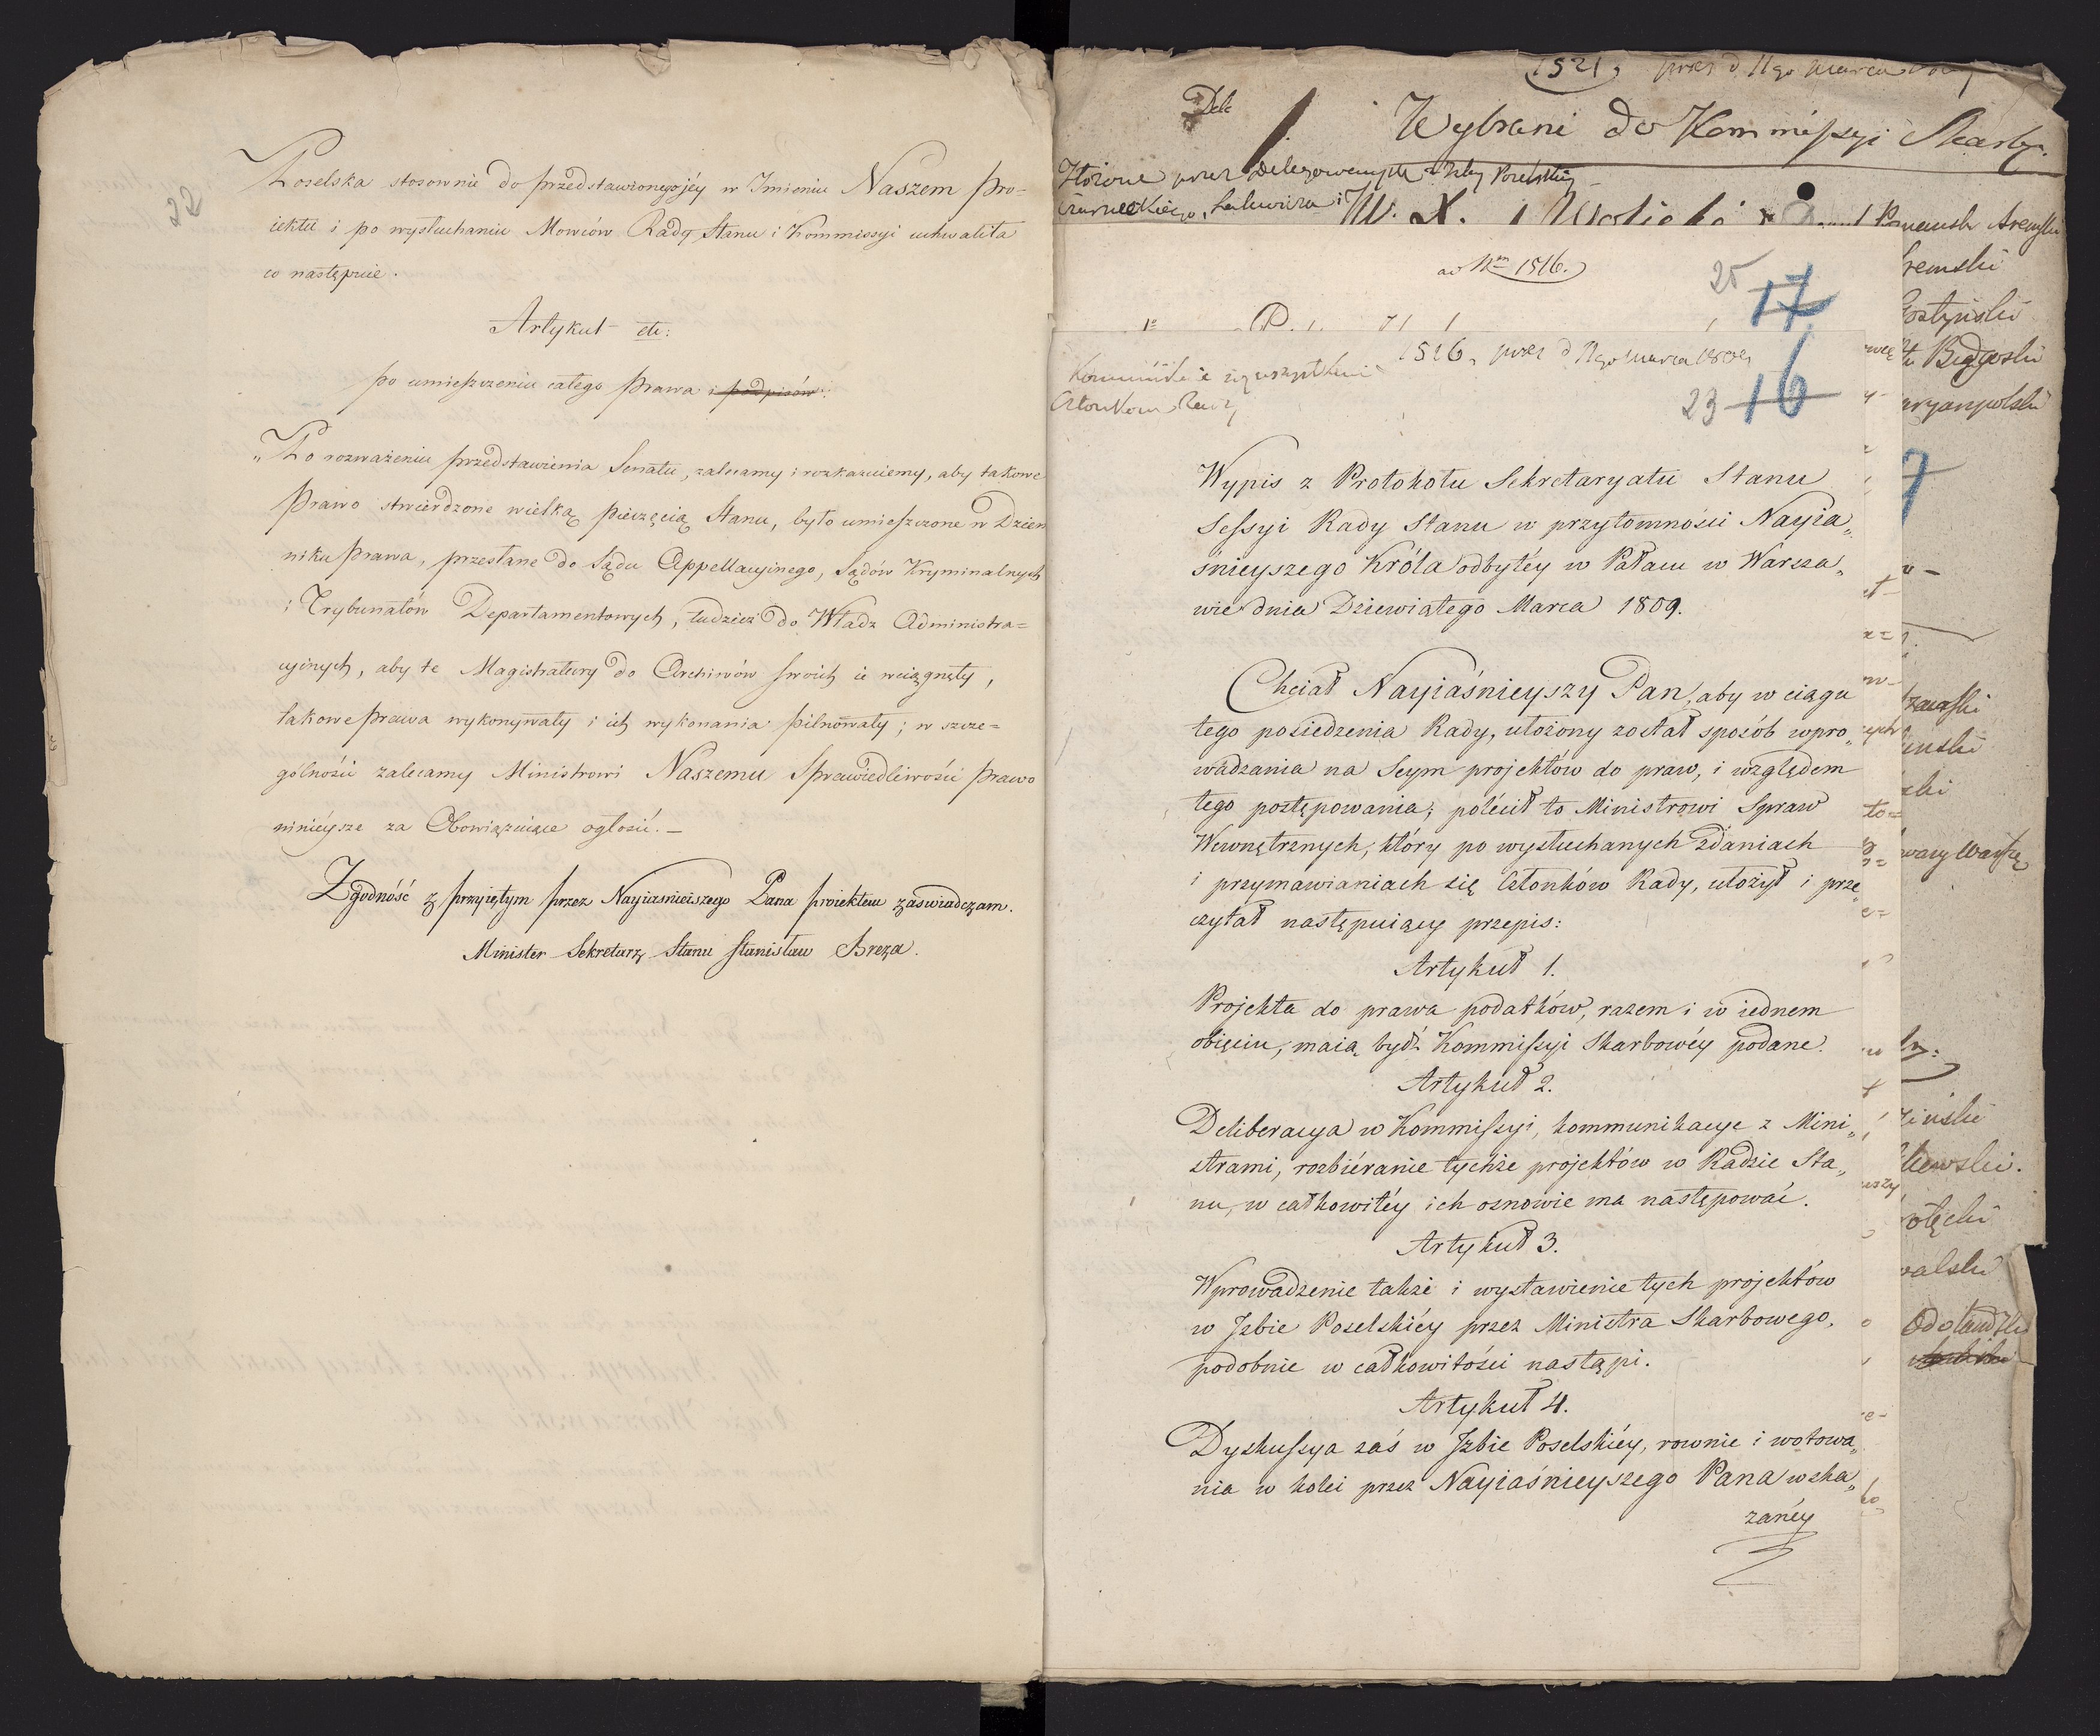 22
Poselska stosownie do przedstawionego jéy w Imieniu Naszem pro=
iektu i po wysłuchaniu Mowców Rady Stanu i Kommissyi uchwaliła
co następuie.
Artykuł etc:
po umieszczeniu całego Prawa i podpisów:
„Po rozważeniu przedstawienia Senatu, zalecamy i rozkazuiemy, aby takowe
Prawo stwierdzone wielką pieczęcią Stanu, było umieszczone w Dzien
niku Prawa, przesłane do Sądu Appellacyinego, Sądów Kryminalnych
i Trybunałów Departamentowych, tudzież do Władz Administra=
cyinych, aby te Magistratury do Archiwów swoich ie wciągnęły,
takowe prawa wykonywały i ich wykonania pilnowały; w szcze=
gólności zalecamy Ministrowi Naszemu Sprawiedliwości prawo
ninieysze za Obowiązuiące ogłosić. —
Zgodność z przyiętym przez Nayiasnieiszego Pana proiektem zaswiadczam.
Minister Sekretarz Stanu Stanisław Breza.
1521, przez d. 11go Marca
Dele
Wybrani do Kommissyi Skarby.
Złożone przez Delegowanych z Izby Poselskiey
W. X. Wolicki
Bydgoski
ad Nrm 1516.
25 17
1516, przez d 11go Marca 1809
Członkom Rady
23 16
Wypis z Protokołu Sekretaryatu Stanu
Sessyi Rady Stanu w przytomności Nayia„
śnieyszego Króla odbytéy w Pałacu w Warsza„
wie dnia Dziewiątego Marca 1809.
Chciał Nayiaśnieyszy Pan, aby w ciągu
tego posiedzenia Rady, ułożony został sposób wpro„
wadzania na Seym projektów do praw, i względem
tego postępowania; polécił to Ministrowi Spraw
Wewnętrznych, który po wysłuchanych zdaniach
i przymawianiach się Członków Rady, ułożył i prze„
czytał następuiący przepis:
Artykuł 1.
Projekta do prawa podatków, razem i w iednem
obięciu, maią bydź Kommissyi Skarbowéy podane.
Artykuł 2.
Deliberacya w Kommissyi, kommunikacye z Mini„
strami, rozbiéranie tychże projektów w Radzie Sta„
nu, w całkowitéy ich osnowie ma następować.
Artykuł 3.
Wprowadzenie także i wystawienie tych projektów
w Izbie Poselskiéy przez Ministra Skarbowego,
podobnie w całkowitości nastąpi.
Artykuł 4.
Dyskussya zaś w Izbie Poselskiéy, rownie i wotowa„
nia w kolei przez Nayiaśnieyszego Pana wska„
zanéy